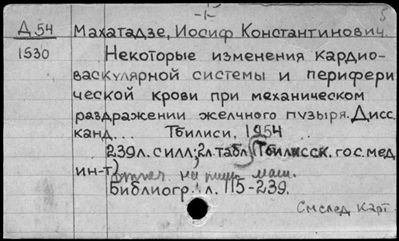 -1-
5
Д 54 Махатадзе, Иосиф Константинович.
1530 Некоторые изменения кардио-
васкулярной системы и перифери
ческой крови при механическом
раздражении желчного пузыря. Дисс.
канд... Тбилиси, 1954 ..
239л. с илл; 2л. табл. (Тбилисск. гос. мед
ин-т)
Отпеч. на пиш. маш.
Библиогр: л. 115-239.
См. след. карт.